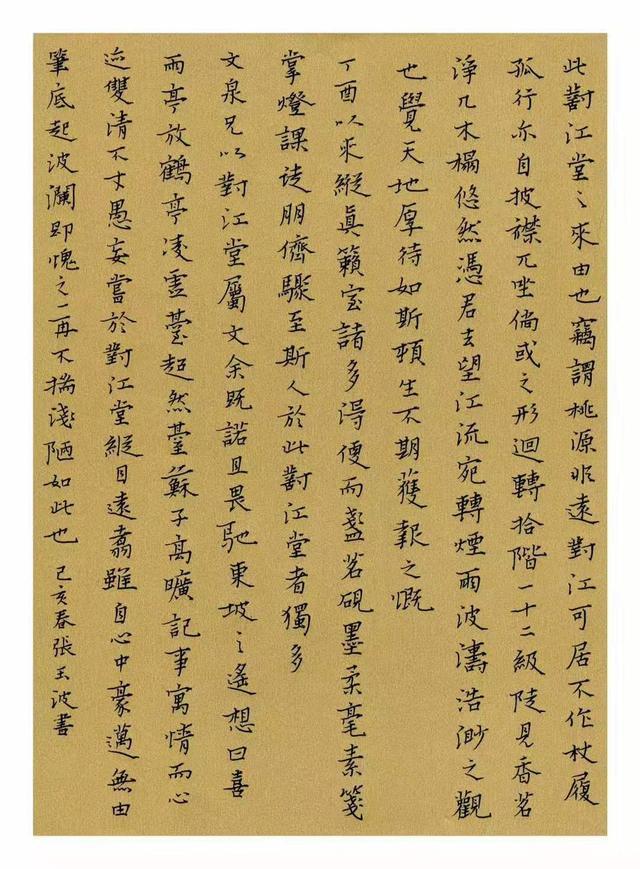 此對江堂之來由也竊謂桃源非遠對江可居不作杖履
孤行亦自披襟兀坐倘或之形迴轉拾階一十二級陡見香茗
淨几木榻悠然憑君去望江流宛轉煙雨波濤浩渺之觀
也覺天地厚待如斯頓生不期獲報之慨
丁酉以來縱真籟室諸多得便而盞茗硯墨柔毫素箋
掌燈課徒朋儕驟至斯人於此對江堂者獨多
文泉兄以對江堂屬文余既諾且畏馳東坡之遙想曰喜
雨亭放鶴亭凌雲臺超然臺蘇子高曠記事寓情而心
迹雙清不才愚妄嘗於對江堂縱目遠翥雖自心中豪邁無由
筆底起波瀾即愧之一再不揣淺陋如此也 己亥春張玉波書